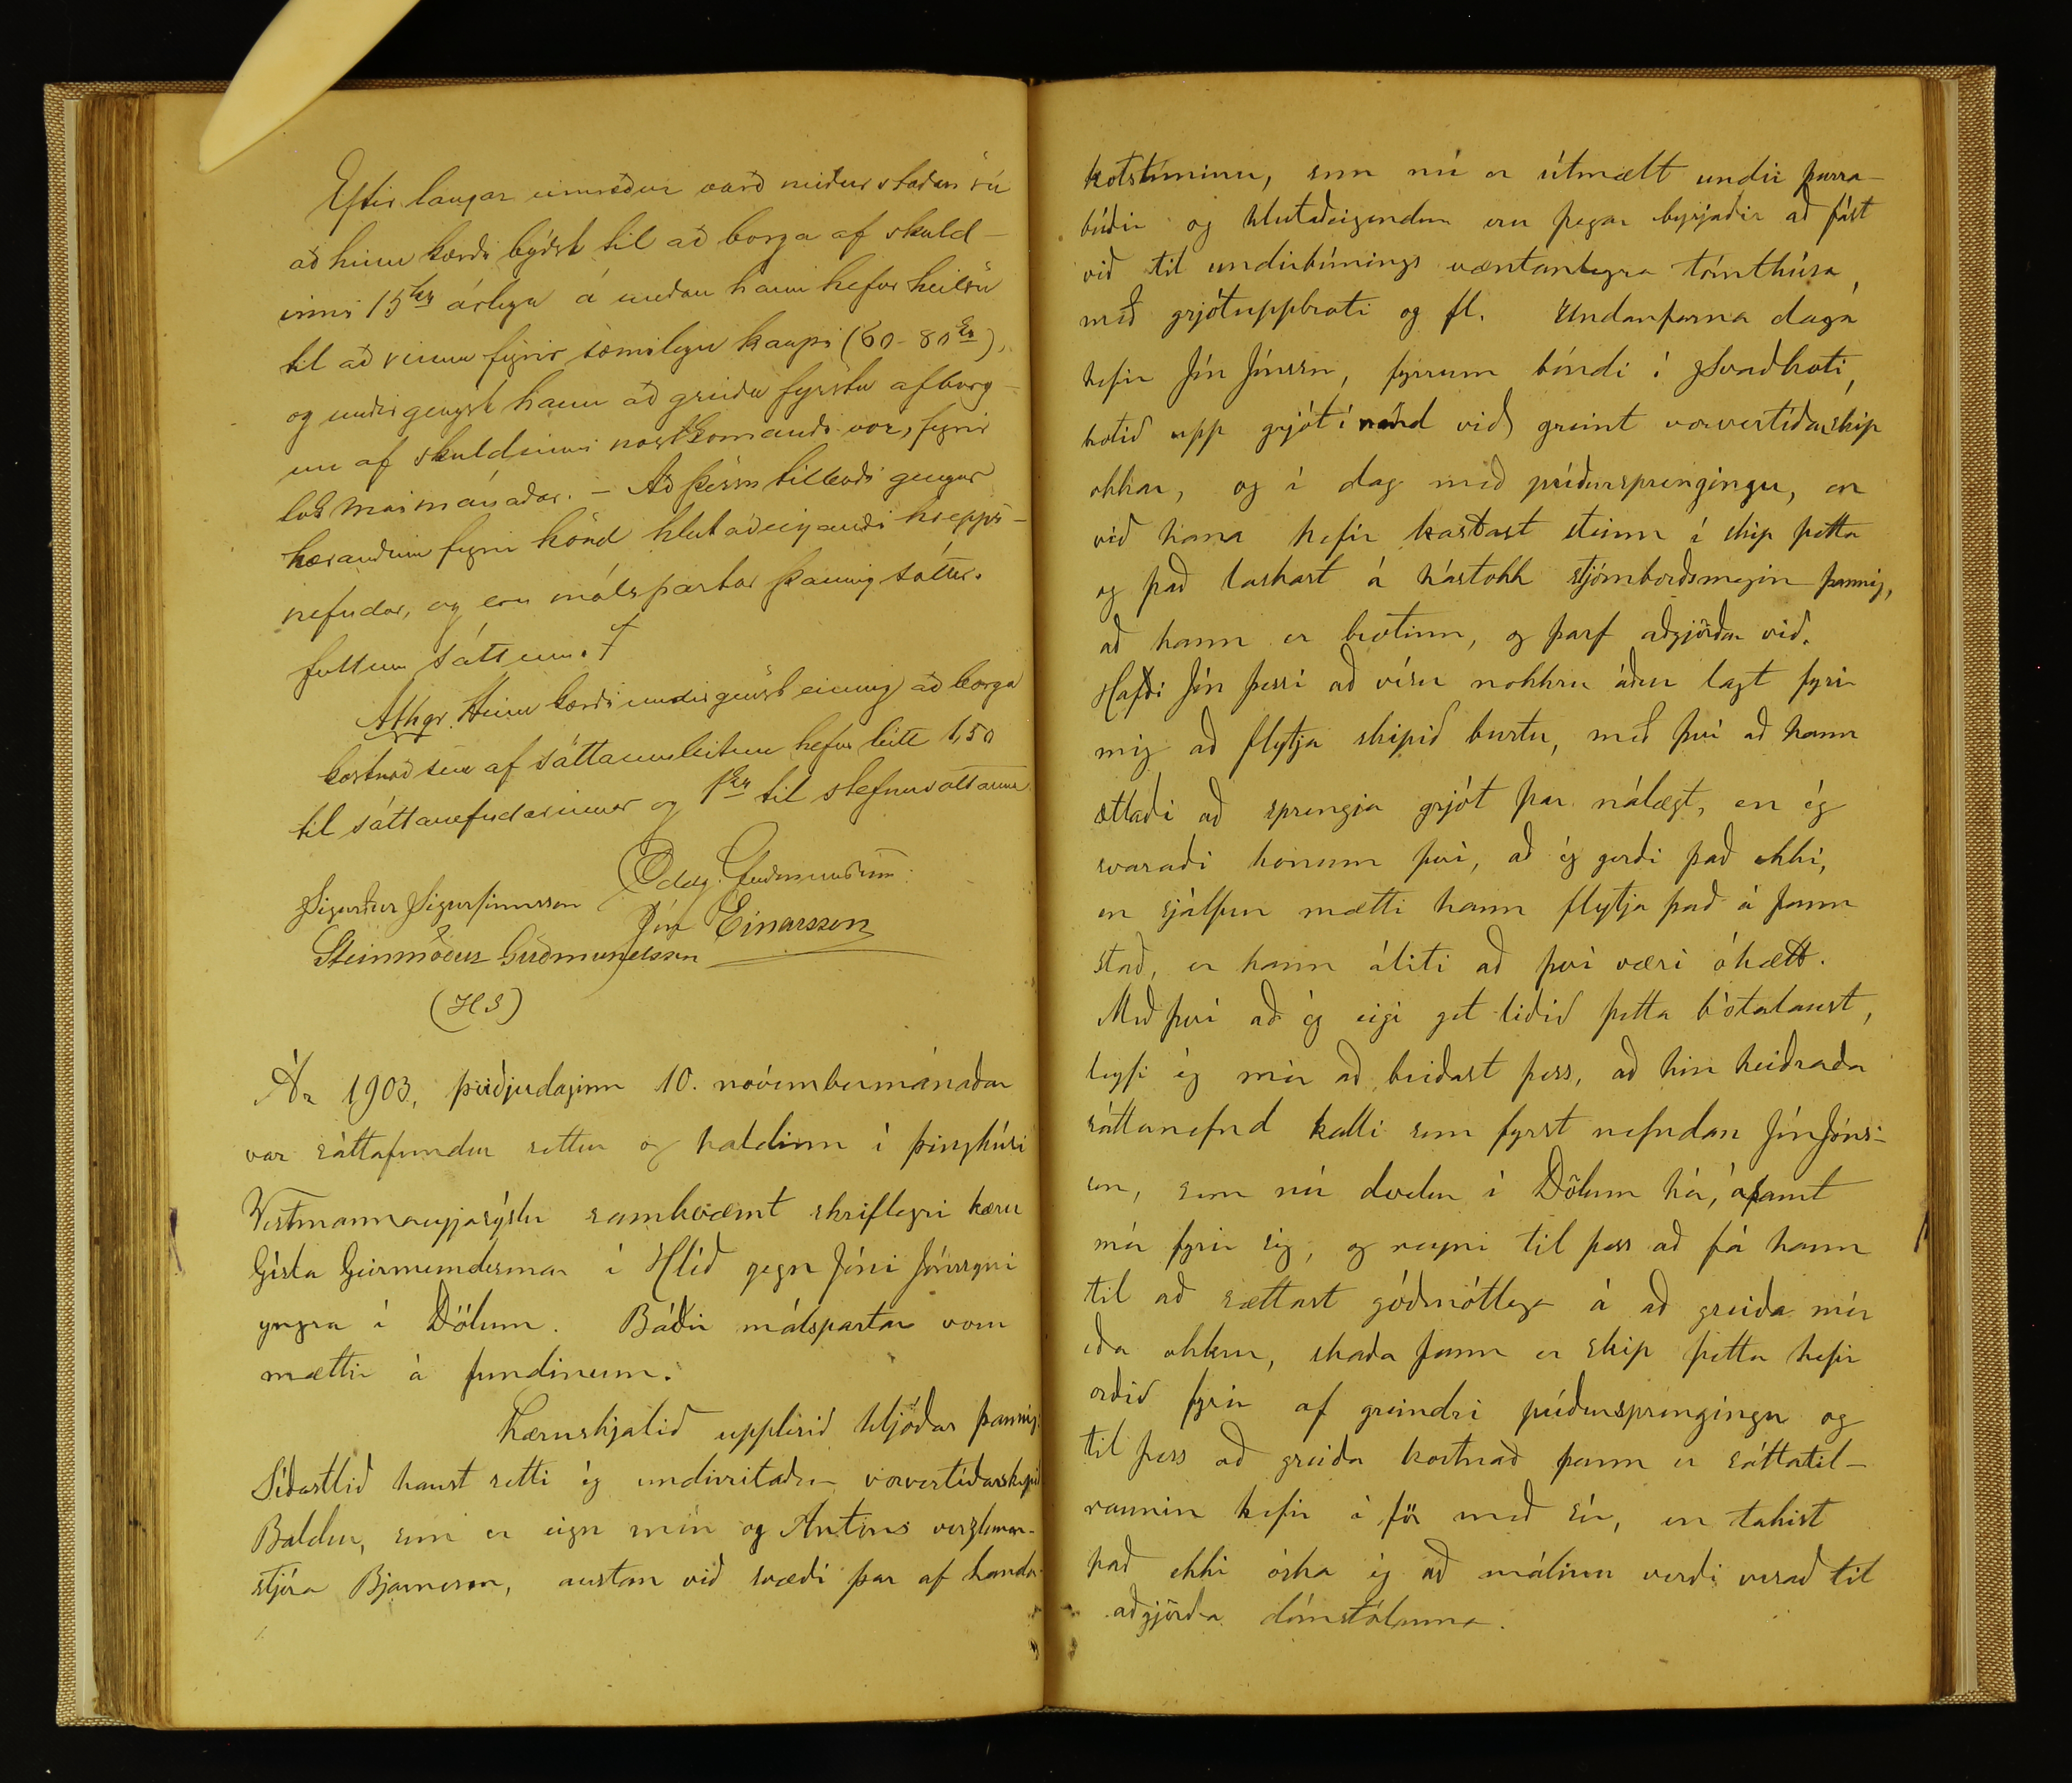 Eptir langar umræður varð niðurstaðan sú
að hinn kærði býðst til að borga af skuld-
inni 15 kr árlega á meðan hann hefur heilsu
til að vinna fyrir sæmilegu kaupi (60-80 kr),
og undirgengst hann að greiða fyrstu afborg-
un af skuldinni næstkomandi vor, fyrir
lok maímánaðar. - Að þessu tilboði gengur
kærandinn fyrir hönd hlutaðeigandi hrepps-
nefndar, og eru málspartar þannig sáttir.
fullum sáttum. †
Athgr. Hinn kærði undirgengst einnig að borga
kostnað sem af sáttaumleitun hefur leitt 1,50
til sáttanefndarinnar og 1 kr til stefnuvottanna
Oddg. Guðmundsson.
Sigurður Sigurfinnsson
Jón Einarsson
Steinmóður Guðmundsson
(HS)
Ár 1903, þriðjudaginn 10. nóvembermánaðar
var sáttafundur settur og haldinn í þinghúsi
Vestmannaeyjasýslu samkvæmt skriflegri kæru
Gísla Geirmundssonar í Hlíð gegn Jóni Jónssyni
yngra í Dölum. Báðir málspartar voru
mættir á fundinum.
Kæruskjalið upplesið hljóðar þannig:
Síðastlið haust setti ég undirritaður vorvertíðarskipið
Baldur, sem er eign mín og Antons verzlunar-
stjóra Bjarnesen, austan við svæði þar af handa-
kotstúninu, sem nú er útmælt undir þurra-
búðir og hlutaðeigendur eru þegar byrjaðir að fást
við til undirbúnings væntanlegra tómthúsa,
með grjótuppbroti og fl. Undanfarna daga
hefir Jón Jónsson, fyrrum bóndi í Svaðkoti,
brotið upp grjót í nánd við greint vorvertíðarskip
okkar, og í dag með púðursprengingu, en
við hana hefir kastast steinn í skip þetta
og það laskast á hástokk stjórnborðsmegin þannig,
að hann er brotinn, og þarf aðgjörðar við.
Hafði Jón þessi að vísu nokkru áður lagt fyrir
mig að flytja skipið burtu, með því að hann
ætlaði að sprengja grjót þar nálægt, en ég
svaraði honum því, að ég gerði það ekki,
en sjálfur mætti hann flytja það á þann
stað, er hann áliti að því væri óhætt.
Með því að ég eigi get liðið þetta bótalaust,
leyfi ég mér að beiðast þess, að hin heiðraða
sáttanefnd kalli sem fyrst nefndan Jón Jóns-
son, sem nú dvelur í Dölum hér, ásamt
mér fyrir sig, og reyni til þess að fá hann
til að sættast góðmótlega á að greiða mér
eða okkur, skaða þann er skip þetta hefir
orðið fyrir af greindri púðursprengingu og
til þess að greiða kostnað þann er sáttatil-
raunin hefir í för með sér, en takist
það ekki óska ég að málinu verði vísað til
aðgjörða dómstólanna.